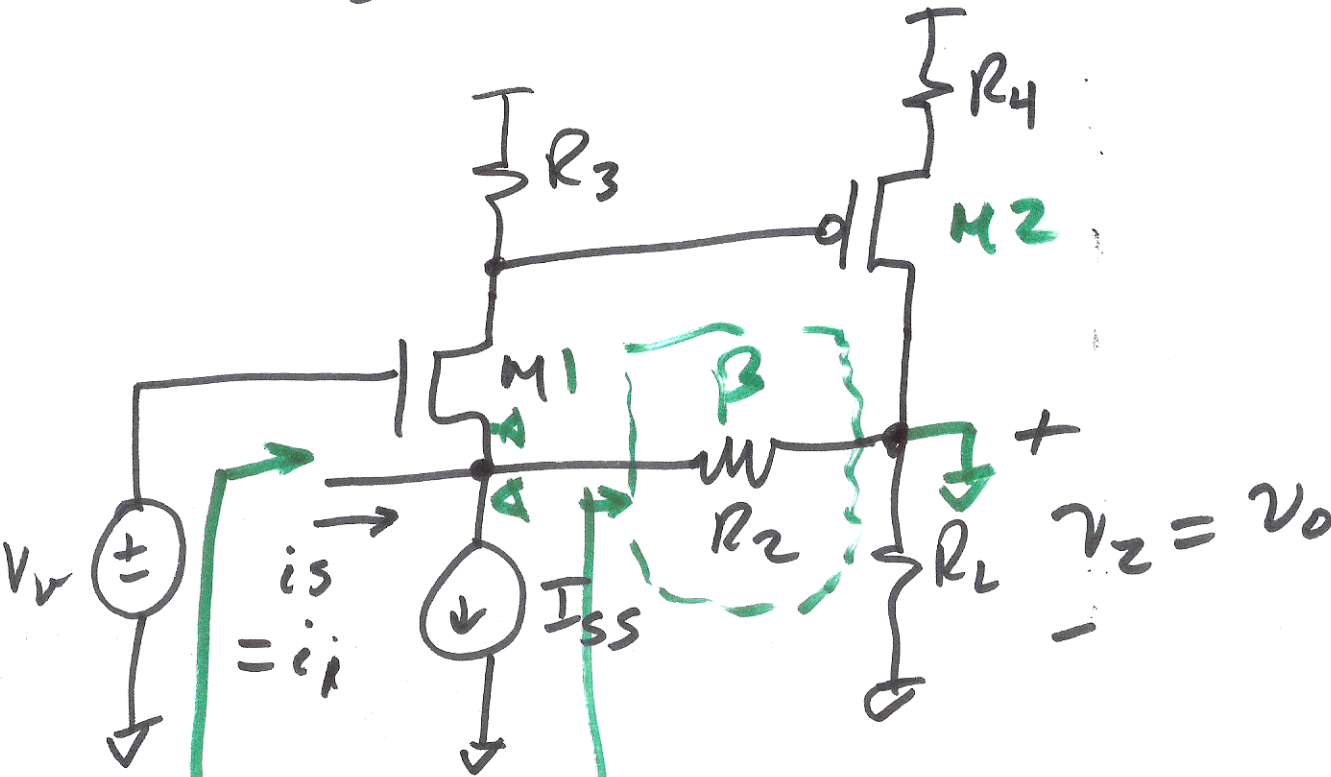 R4
R3
M2
M1
β
+
R2
RL
v2 = vo
Vv
+
-
is
= ii
ISS
-